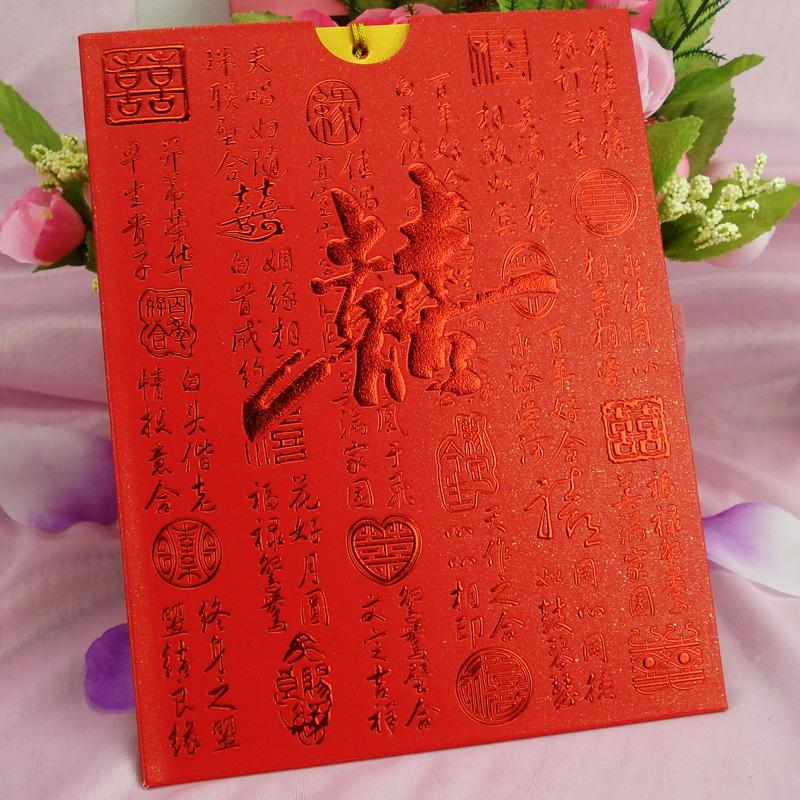 締结良缘
缘订三生
永结同心
相亲相爱
囍
福禄鸳鸯
美满家园
福
美满良缘
相敬如宾
百年好合
永浴爱河
禧
同心同德
如鼓琴瑟
百年好合
白头偕
天作之合
心心相印
福
缘
佳偶
宜室宜
凤于飞
美满家园
囍
鸳鸯璧合
文定吉祥
夫唱妇随
珠联璧合
囍
姻缘相
白首成约
福
花好月圆
福禄鸳鸯
天赐
囍
并蒂荣华
早生贵子
百年好合
白头偕老
情投意合
喜
终身之盟
盟结良缘
囍